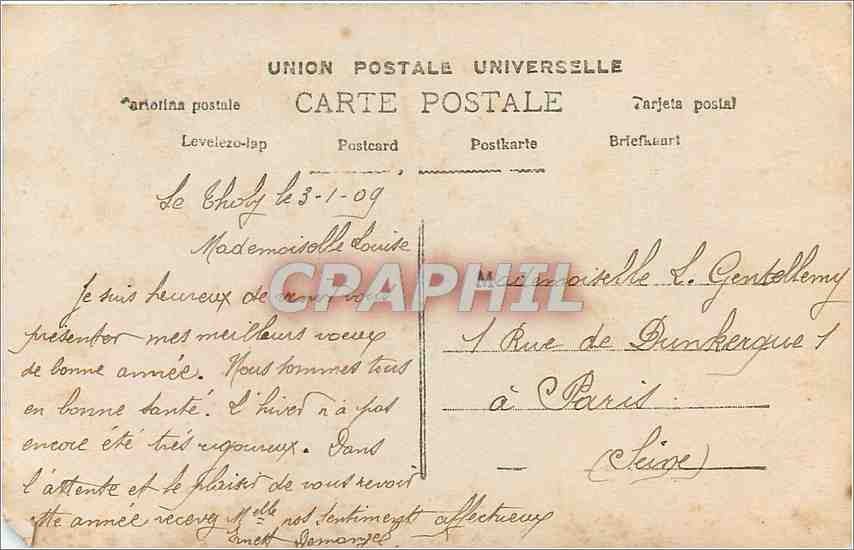 UNION POSTALE UNIVERSELLE
Cartolina postale CARTE POSTALE Tarjeta postal
Levelezo-lap Postcard Postkarte Briefkaart
Le Tholy le 3-1-09
Mademoiselle Louise
Je suis heureux de venir vous
présenter mes meilleurs voeux
de bonne année. Nous sommes tous
en bonne santé. L'hiver n'a pas
encore été très rigoureux. Dans
l'attente et le plaisir de vous revoir
cette année recevez Melle nos sentiments affectueux
Demange
Mademoiselle L. Gentellemy
1 Rue de Dunkerque 1
à Paris
(Seine)
CPAPHIL